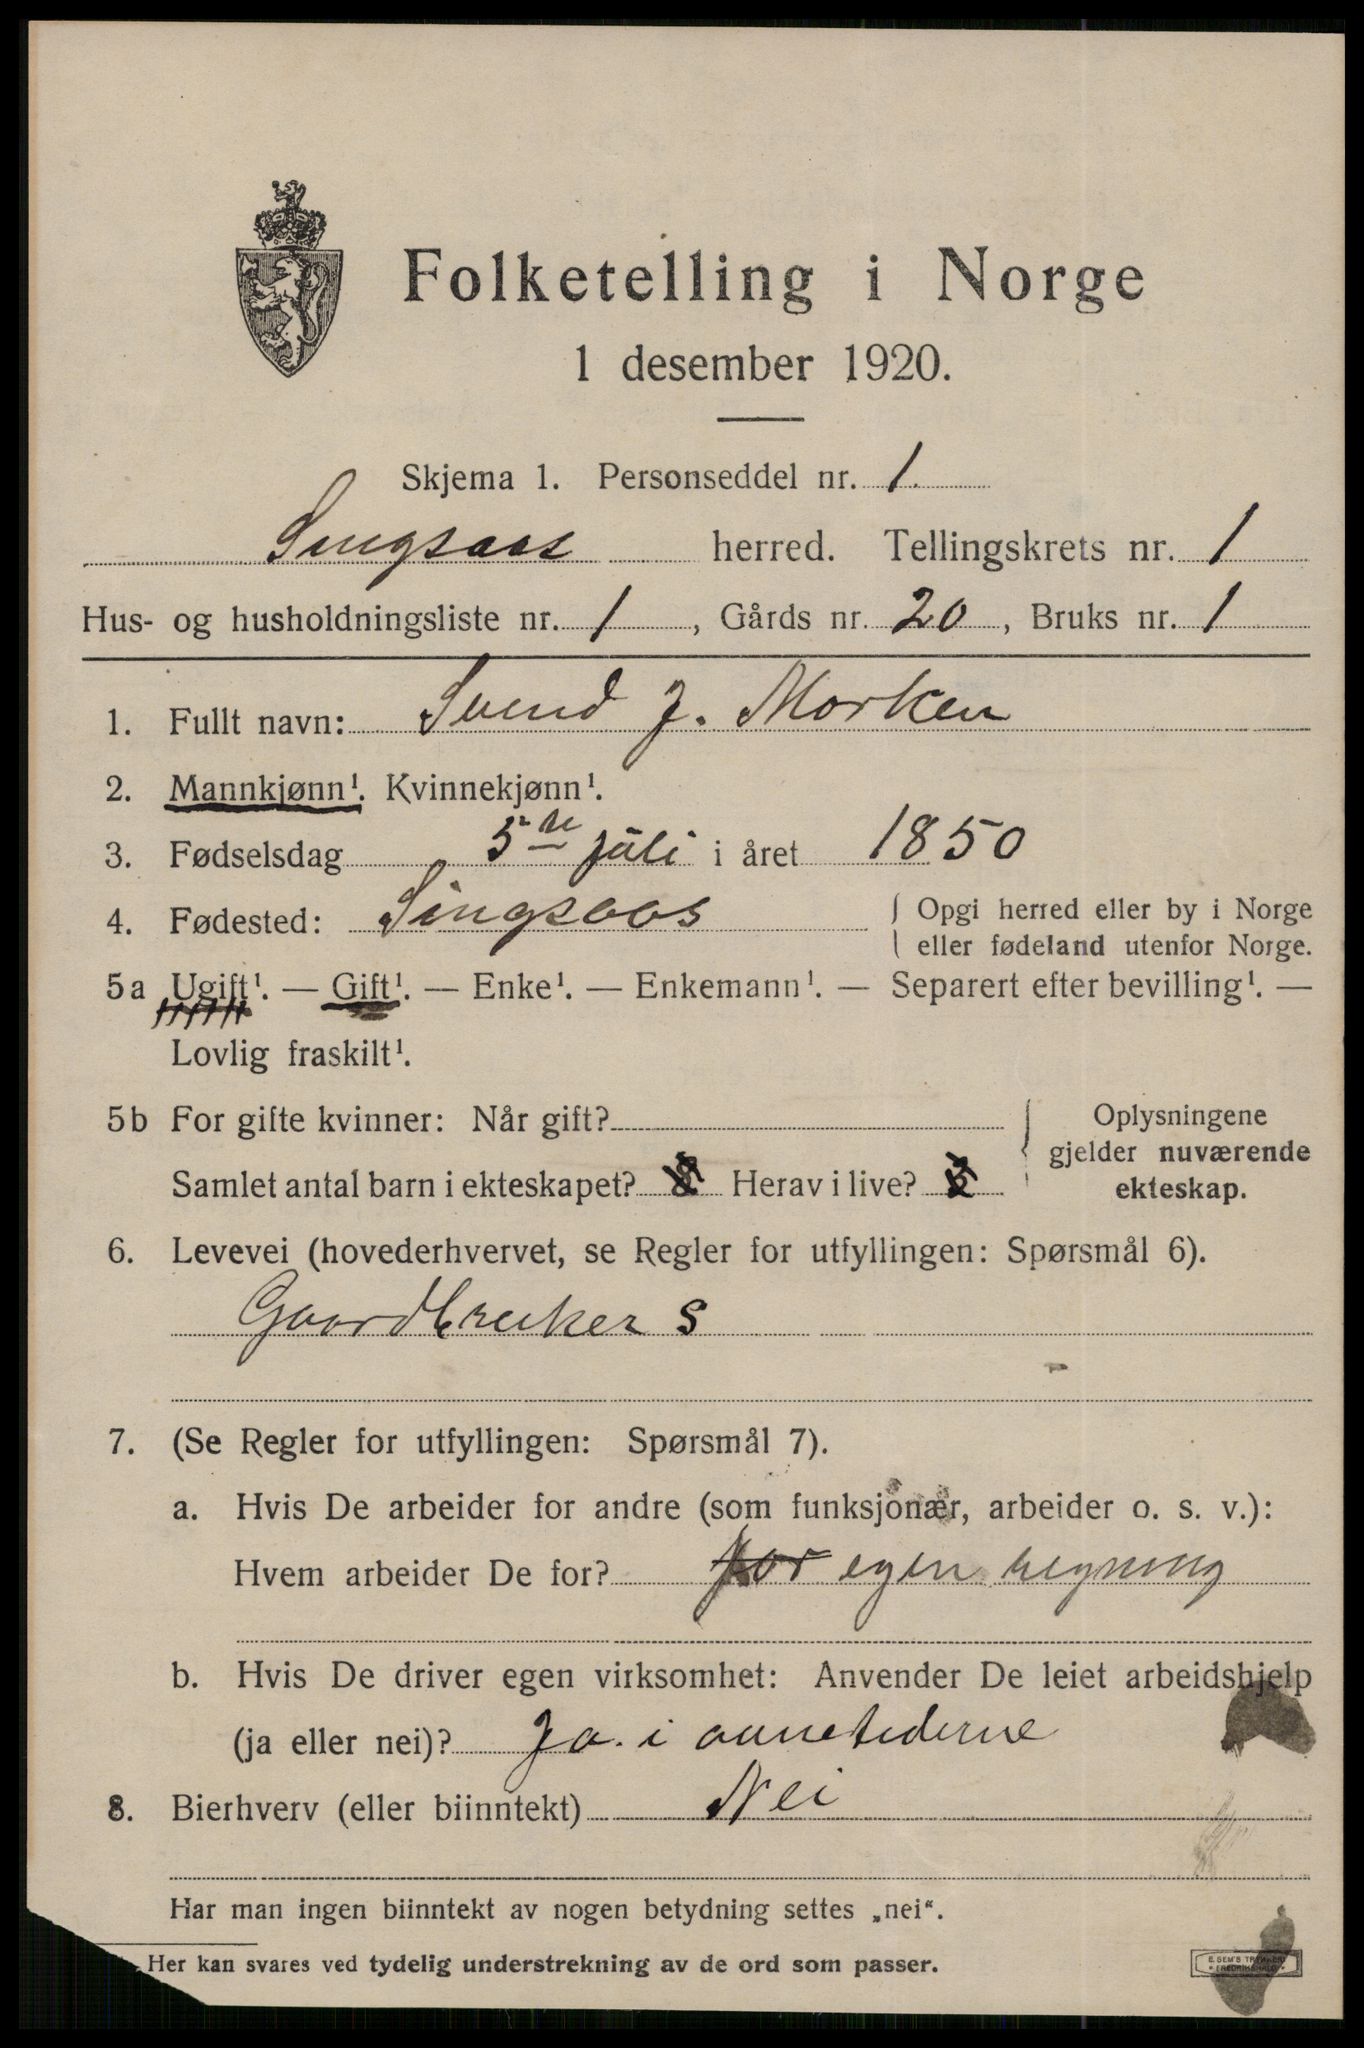 Folketelling i Norge
1 desember 1920.
Skjema 1. Personseddel nr. 1.
Singsaas herred. Tellingskrets nr. 1
Hus- og husholdningsliste nr. 1, Gårds nr. 20, Bruks nr. 1
1. Fullt navn: Svend J. Morken
2. Mannkjønn¹. Kvinnekjønn¹.
3. Fødselsdag 5te juli i året 1850
4. Fødested: Singsaas
Opgi herred eller by i Norge
eller fødeland utenfor Norge.
5a Ugift¹. — Gift¹. — Enke¹. — Enkemann¹. — Separert efter bevilling¹. —
Lovlig fraskilt¹.
5b For gifte kvinner: Når gift?
Samlet antal barn i ekteskapet? Herav i live?
Oplysningene
gjelder nuværende
ekteskap.
6. Levevei (hovederhvervet, se Regler for utfyllingen: Spørsmål 6).
Gaardbruker S
7. (Se Regler for utfyllingen: Spørsmål 7).
a. Hvis De arbeider for andre (som funksjonær, arbeider o. s. v.):
Hvem arbeider De for? for egen regning
b. Hvis De driver egen virksomhet: Anvender De leiet arbeidshjelp
(ja eller nei)? Ja. i onnetiderne
8. Bierhverv (eller biinntekt) Nei
Har man ingen biinntekt av nogen betydning settes „nei“.
Her kan svares ved tydelig understrekning av de ord som passer.
E. SEM'S TRYKKERI
FREDRIKSHALD